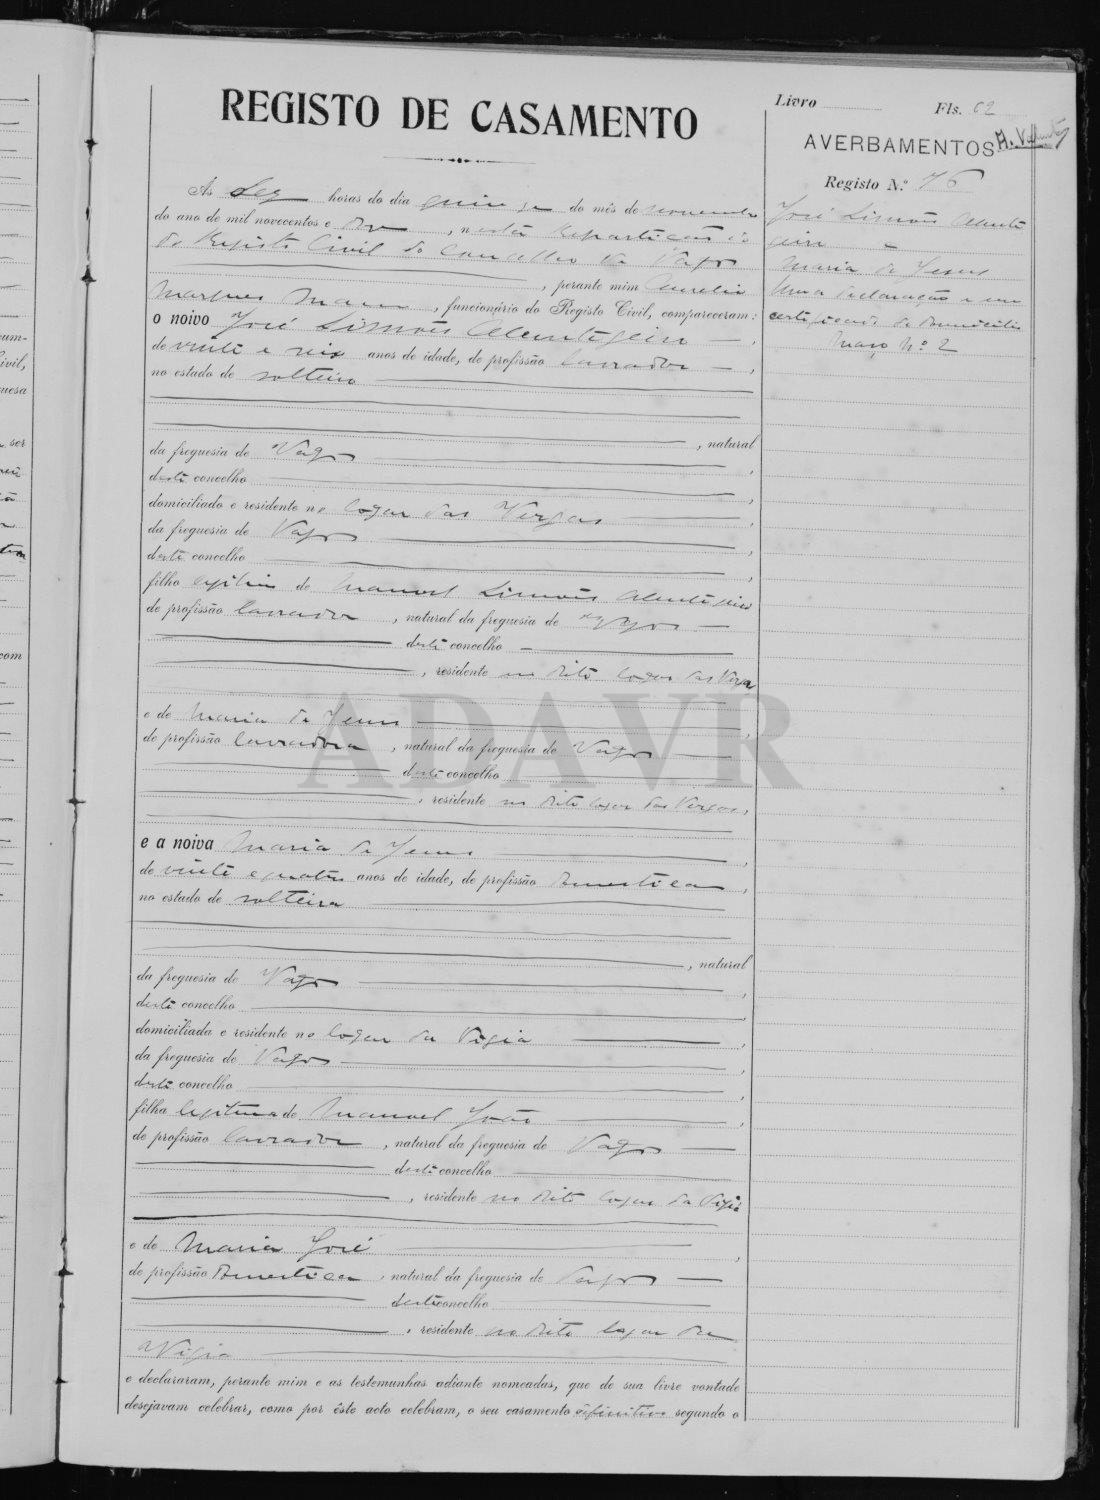 REGISTO DE CASAMENTO
Livro Fls. 62
AVERBAMENTOS
Registo N.º 76
José Simões Alentejeiro
e
Maria de Jesus
Uma declaração e um
certificado de domicilio
Maço Nº 2
Ás dez horas do dia quinze do mês de novembro
do ano de mil novecentos e doze, nesta Repartição
do Registo Civil do Concelho de Vagos
, perante mim Aurelio
Marques Mano, funcionário do Registo Civil, compareceram:
o noivo José Simões Alentejeiro
de vinte e seis anos de idade, de profissão lavrador,
no estado de solteiro
, natural
da freguesia de Vagos,
deste concelho,
domiciliado e residente no logar das Vergas
da freguesia de Vagos,
deste concelho,
filho legitimo de Manoel Simões Alentejeiro
de profissão lavrador, natural da freguesia de Vagos
deste concelho
, residente no dito logar das Vergas
e de Maria de Jesus,
de profissão lavradora, natural da freguesia de Vagos
deste concelho
, residente no dito logar das Vergas,
e a noiva Maria de Jesus,
de vinte e quatro anos de idade, de profissão domestica,
no estado de solteira
, natural
da freguesia de Vagos,
deste concelho,
domiciliada e residente no logar da Vigia,
da freguesia de Vagos,
deste concelho,
filha legitima de Manoel João,
de profissão lavrador, natural da freguesia de Vagos
deste concelho
, residente no dito logar da Vigia
e de Maria José,
de profissão domestica, natural da freguesia de Vagos
deste concelho
, residente no dito logar da
Vigia
e declararam, perante mim e as testemunhas adiante nomeadas, que de sua livre vontade
desejavam celebrar, como por êste acto celebram, o seu casamento definitivo segundo o
ADAVR